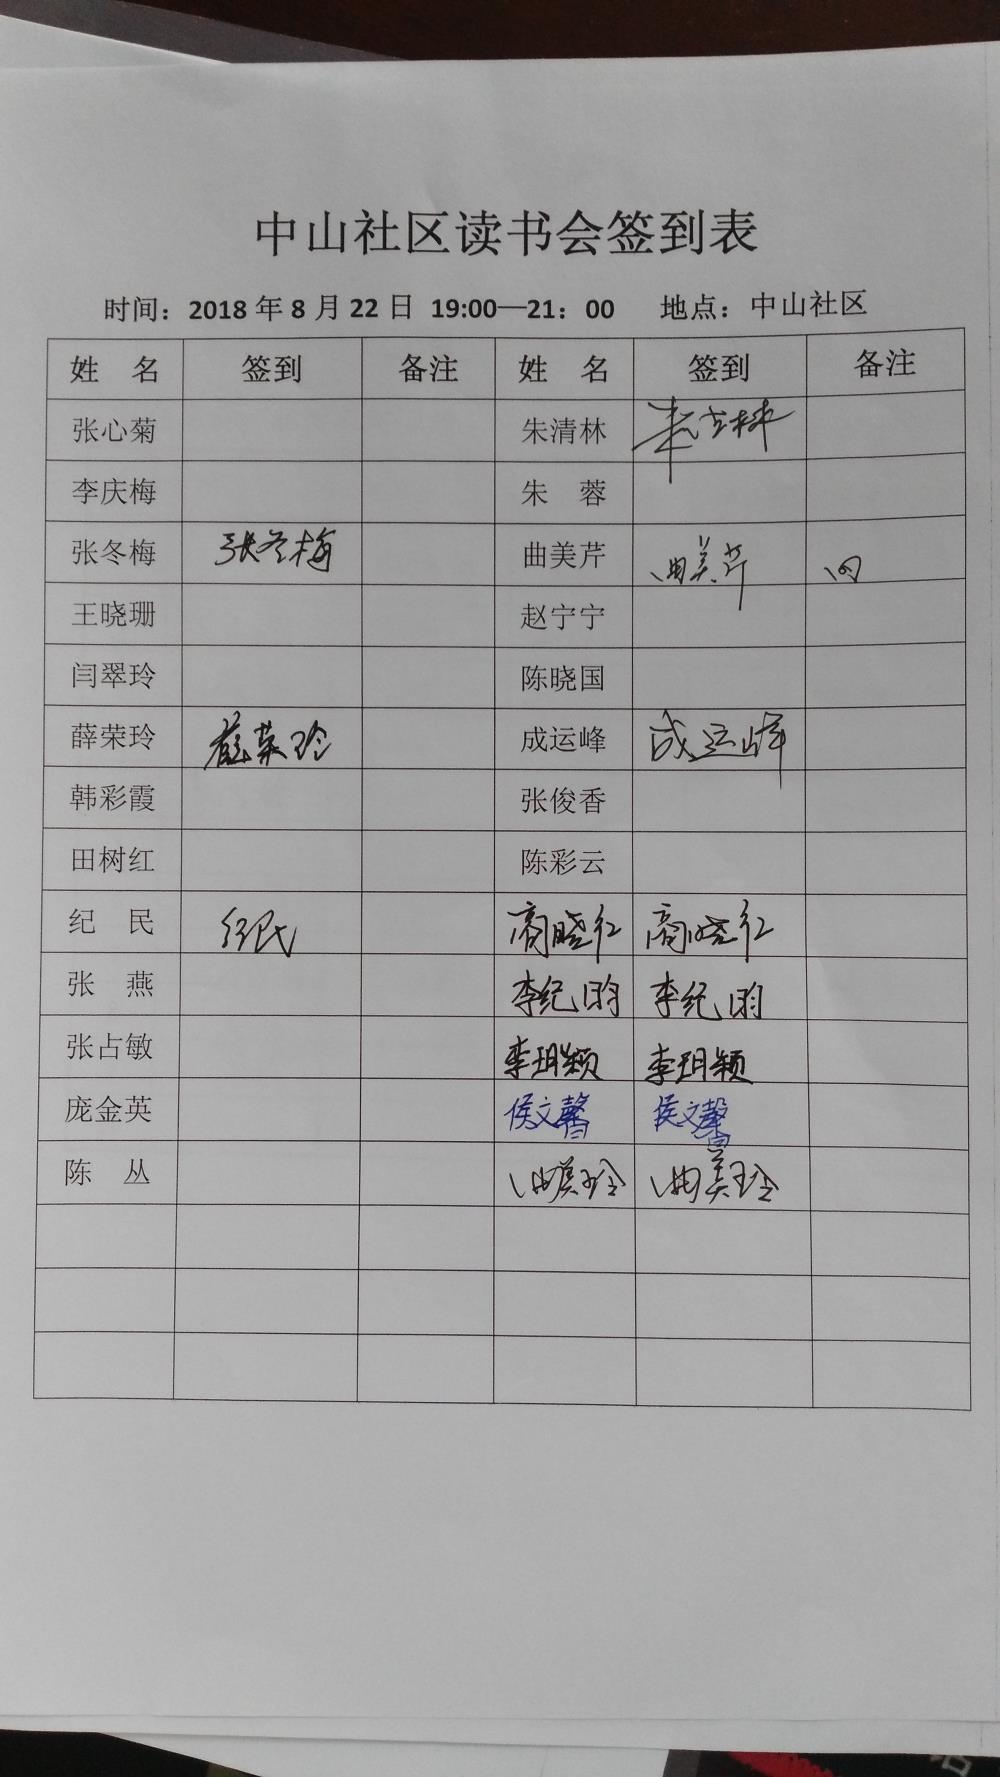 中山社区读书会签到表
时间：2018年8月22日 19:00—21：00 地点：中山社区
姓 名 签到 备注 姓 名 签到 备注
张心菊 朱清林 朱清林
李庆梅 朱 蓉
张冬梅 张冬梅 曲美芹 曲美芹
王晓珊 赵宁宁
闫翠玲 陈晓国
薛荣玲 薛荣玲 成运峰 成运峰
韩彩霞 张俊香
田树红 陈彩云
纪 民 纪民 商晓红 商晓红
张 燕 李纪昀 李纪昀
张占敏 李玥颖 李玥颖
庞金英 侯文馨 侯文馨
陈 丛 曲美玲 曲美玲